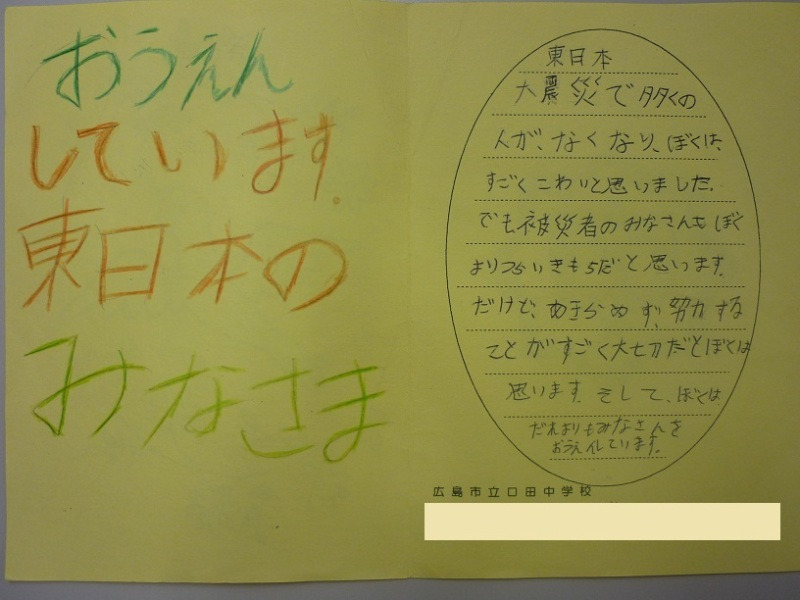 おうえん
しています。
東日本の
みなさま
東日本
大震災で多くの
人が、なくなり、ぼくは、
すごくこわいと思いました。
でも被災者のみなさんはぼく
よりつらいきもちだと思います。
だけど、あきらめず、努力する
ことがすごく大切だとぼくは
思います。そして、ぼくは
だれよりもみなさんを
おうえんしています。
広島市立口田中学校